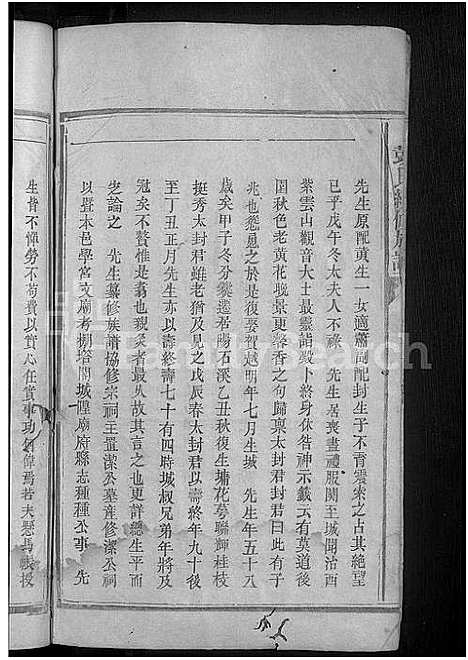 先生原配黄生一女適蕭高配封生子不育熊來之占其絶望
已乎戊午冬太夫人不祿　先生居喪盡禮服闋至城聞治西
紫雲山觀音大士最靈詣殿卜終身休咎神示籤云有莫道後
園秋色老黄花晚景更馨香之句歸禀太封君封君曰此有子
兆也慫恿之於是復娶賀越明年七月生城　先生年五十八
歲矣甲子冬分爨遷居陽石溪乙丑秋復生墉花萼聯輝桂枝
挺秀太封君雖老猶及見之戊辰春太封君以壽終年九十後
至丁丑正月先生亦以壽終壽七十有四時城叔兄弟年將及
冠矣不贅惟是翥也親炙者最久故其言之也更詳總生平而
論之　先生纂修族譜協修宗祠王置潔公墓産修潔公祠
以曁本邑學宫文廟考棚塔閣城隍廟府縣志種種公事　先
生皆不憚勞不苟費以實心任實事功創偉焉若夫懸馬幟授
氏續修族譜